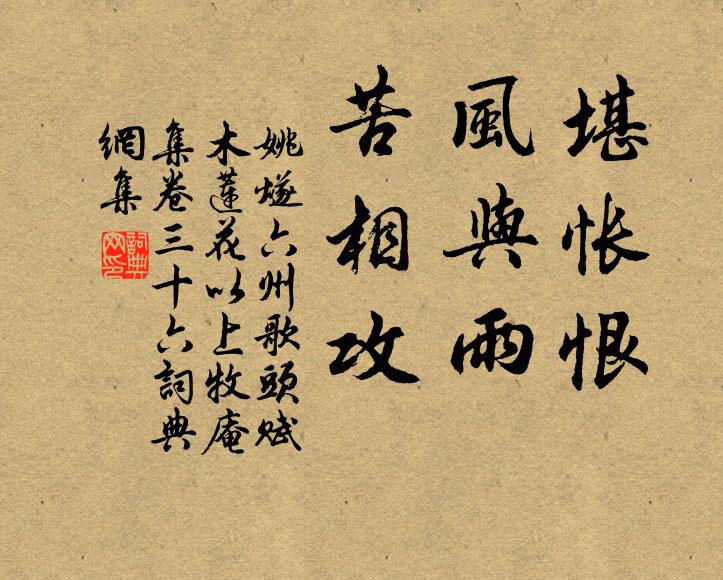 堪悵恨
風與雨
苦相攻
姚燧六州歌頭賦
木蓮花以上牧庵
集卷三十六詞典
網集
詞典網印